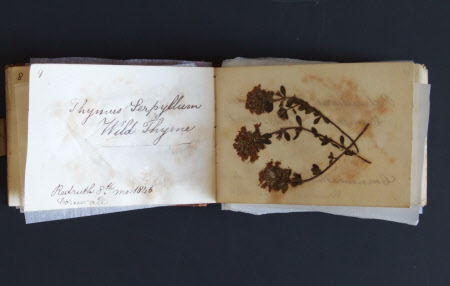 9
Thymus Serpyllum
Wild Thyme
Redruth 8th mo. 1846
Cornwall
8